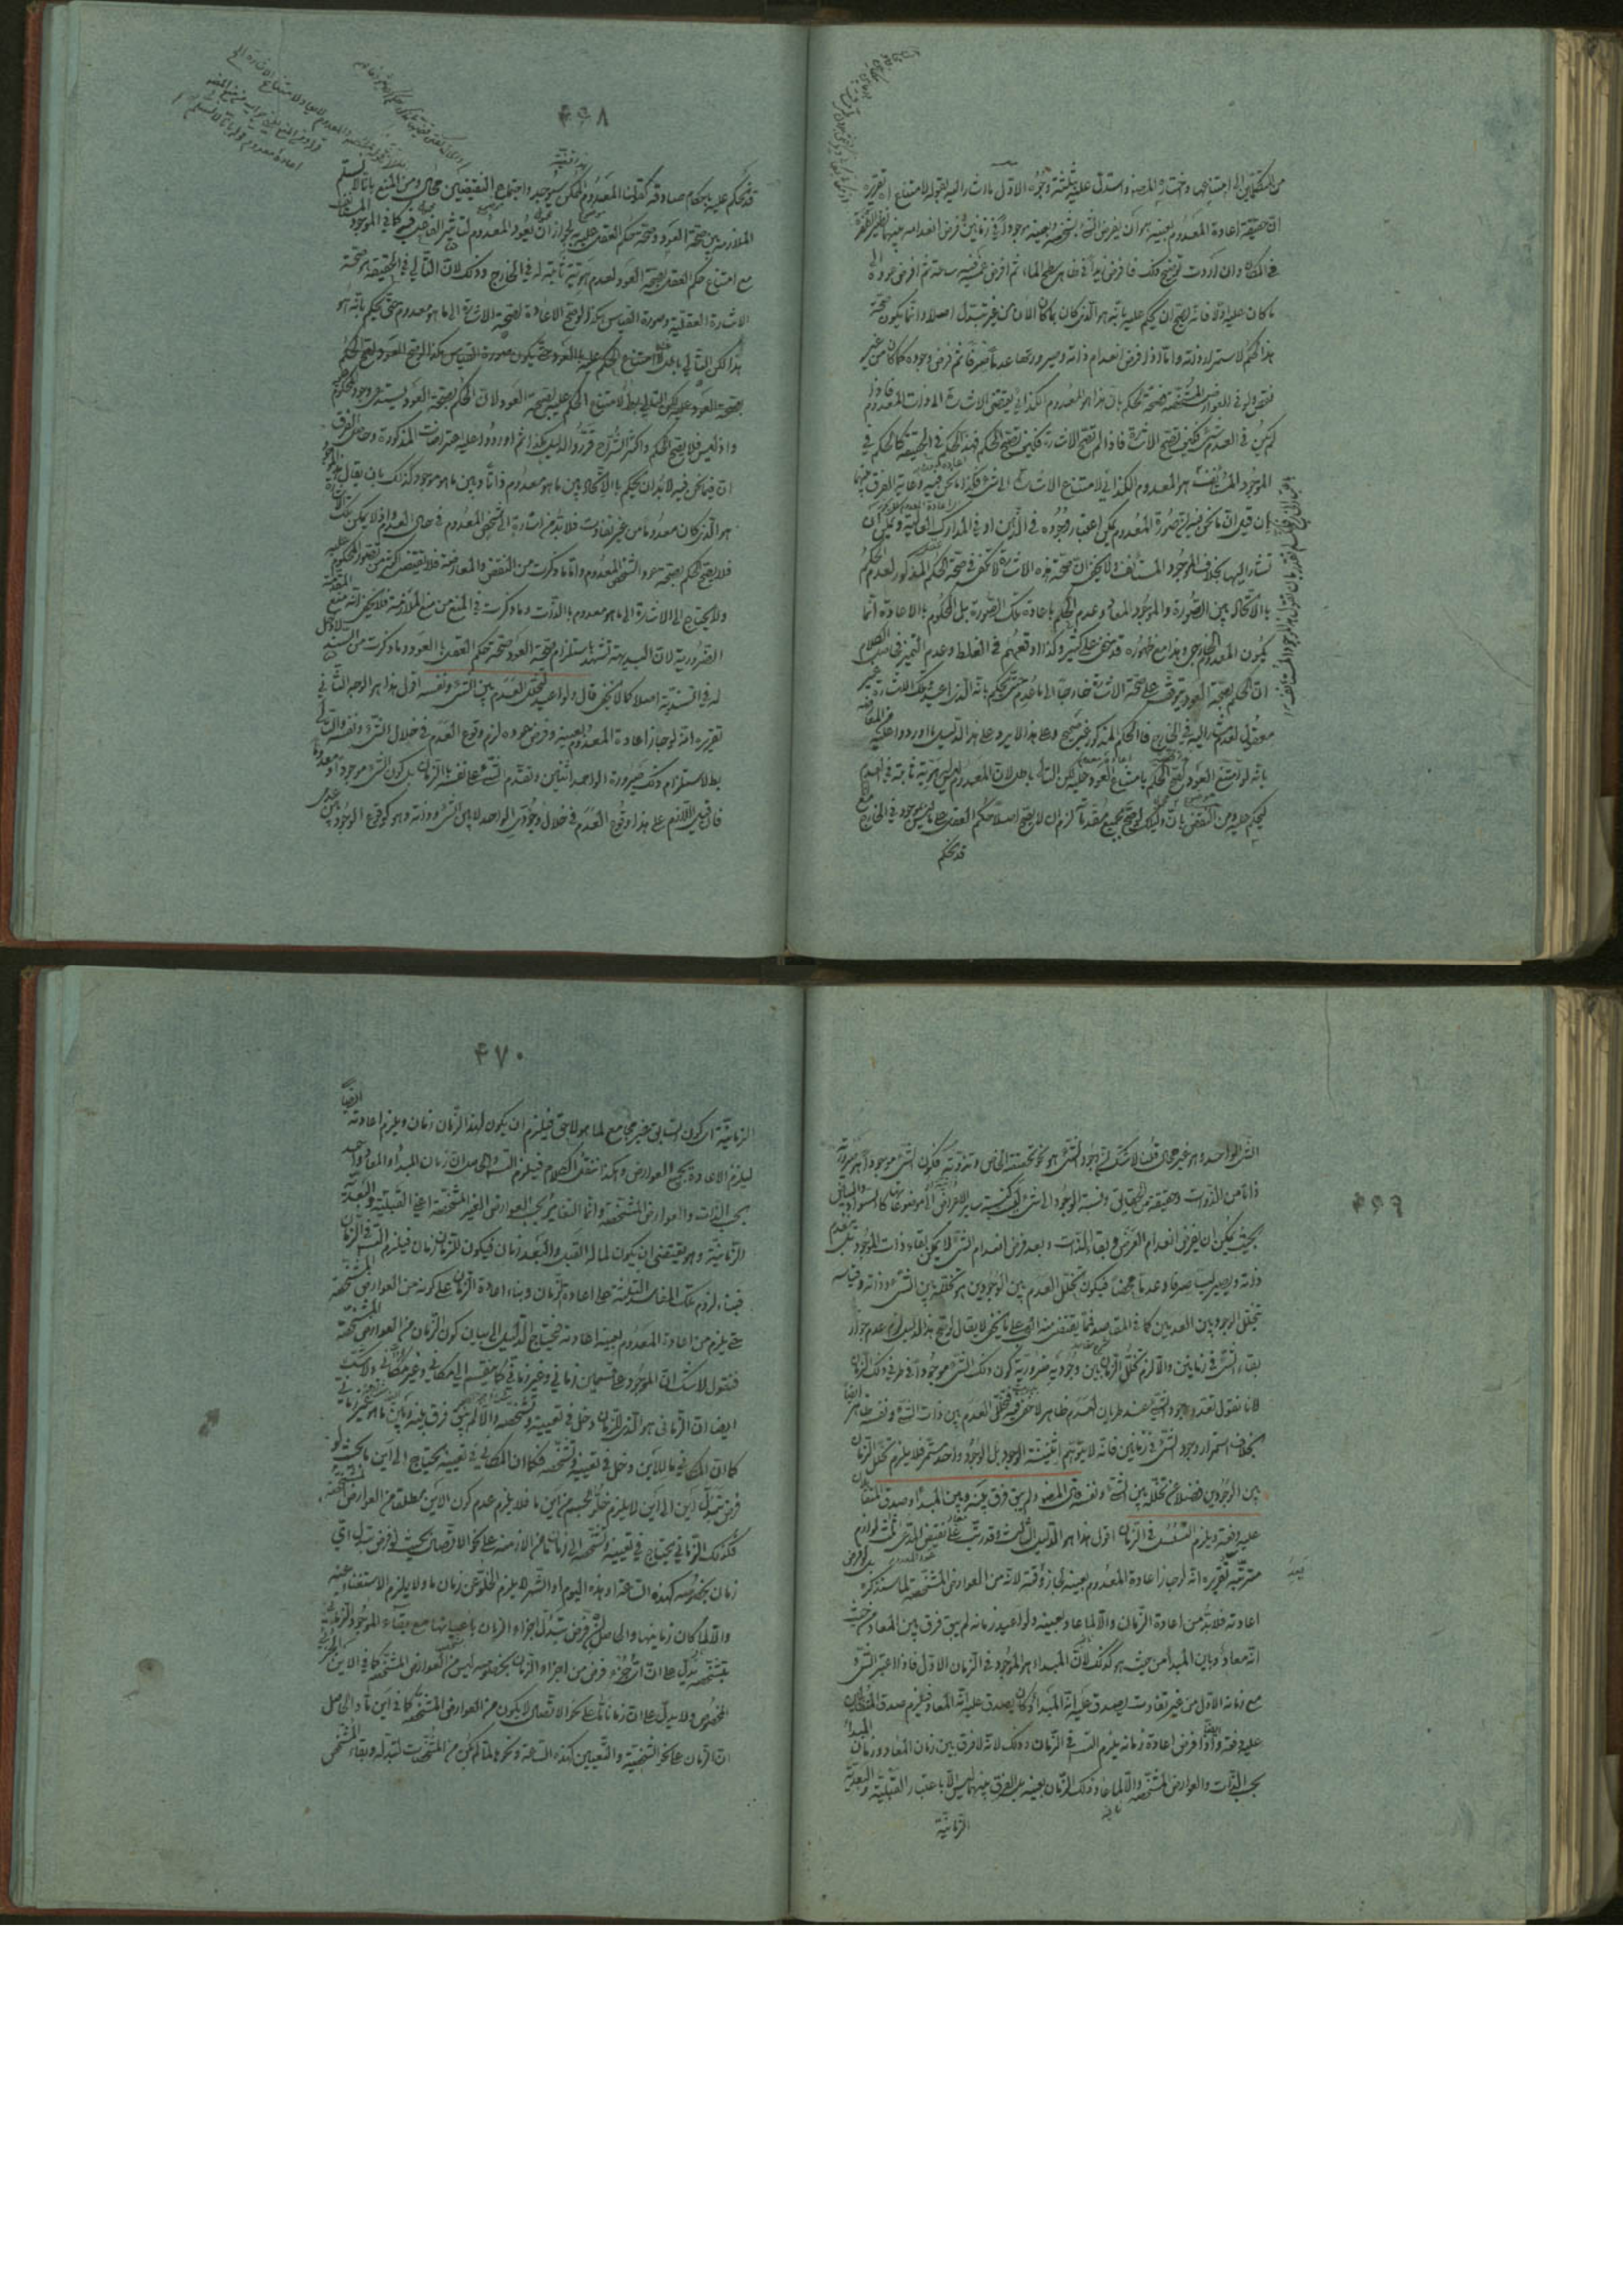 من المتكلمين الى امتناعها واختاره المصنف واستدل عليه بثلثة وجوه الاول ما اشار اليه بقوله لامتناع اه تقريره
ان حقيقة اعادة المعدوم بعينه هو ان يفرض الشئ بشخصه وبعينه موجودا في زمانين وفرض انعدامه بينهما نظير الطفرة
في المكان وان اردت توضيح ذلك فافرض زيدا في ظاهر سطح الماء ثم افرض غرقه فيه ساعة ثم افرض عوده الى
ما كان عليه اولا فانه يصح ان يحكم عليه بانه هو الذي كان بما كان الان من غير تبدل اصلا وانما يكون صحة
هذا الحكم لاستمرار ذاته واما اذا فرض انعدام ذاته وصيرورتها عدما صرفا ثم فرض وجوده كما كان من غير
نقص ولو في العوارض المشخصة فصحة الحكم بان هذا هو المعدوم الكذائي يقتضي الاشارة الى ذات المعدوم فاذا
لم يكن في العدم شئ فكيف تصح الاشارة فاذا لم تصح الاشارة فكيف يصح الحكم فهذا الحكم في الحقيقة كالحكم في
الموجود المستأنف هو المعدوم الكذائي لامتناع الاشارة الى شئ فكذا ما نحن فيه وغاية الفرق بينهما
بان قيل ان ما نحن فيه ان صورة المعدوم يمكن اعتبار وجوده في الذهن او في المدارك العالية ويمكن ان
تشار اليها بخلاف الموجود المستأنف لا يخفى ان صحة هذه الاشارة لا تكفي في صحة الحكم المذكور لعدم الحكم
بالاتحاد بين الصورة والموجود المعاد وعدم الحكم باعادة تلك الصورة بل المحكوم بالاعادة انما
يكون المعدوم الخارجي وهذا مع ظهوره قد خفي على كثير وكذا اوقعهم في الغلط وعدم التميز في الكلام
ان الحكم بصحة العود يتوقف على صحة الاشارة خارجا الى ما عدم حتى يحكم بانه الذي اعيد وتلك الاشارة غير
معقول لعدم المشار اليه في الخارج فالحكم المذكور غير صحيح وعلى هذا لا يرد على هذا الدليل ما اوردوا عليه
بانه لو امتنع العود لصح الحكم بامتناع العود عليه لكن التالي باطل لان المعدوم ليس له هوية ثابتة في العدم
ليحكم عليه ومن النقض بان دليلكم لو صح بجميع مقدماته لزم ان لا يصح اصلا حكم العقل على ما ليس بموجود في الخارج مع
قد يحكم
۴۶۸
قد يحكم عليه باحكام صادقة كقولنا المعدوم الممكن سيوجد واجتماع النقيضين محال ومن المنع بانا لا نسلم
الملازمة بين صحة العود وصحة حكم العقل عليه لجواز ان يعود المعدوم لتاثير الفاعل فيه كما في الموجود المستأنف
مع امتناع حكم العقل بصحة العود لعدم هوية ثابتة له في الخارج وذلك لان التالي في الحقيقة هو صحة
الاشارة العقلية وصورة القياس هكذا لو صح الاعادة لصحة الاشارة الى ما هو معدوم حتى يحكم بانه هو
هذا لكن التالي باطل لا امتناع الحكم عليه بالعود حتى يكون صورة القياس هكذا لو صح العود لصح الحكم
بصحة العود عليه لكن التالي باطل لامتناع الحكم عليه بصحة العود لان الحكم بصحة العود يستدعي وجود المحكوم عليه
واذ ليس فلا يصح الحكم واكثر الشراح قرروا الدليل هكذا ثم اوردوا عليه اعتراضات المذكورة وحاصل الفرق
ان فيما نحن فيه لا بد ان يحكم بالاتحاد بين ما هو معدوم ذاتا وبين ما هو موجود كذلك بان يقال هذا الموجود
هو الذي كان معدوما من غير تفاوت فلا بد من اشارة الى شخص المعدوم في حال العدم واذ لا يمكن تلك الاشارة
فلا يصح الحكم بصحة عود الشخص المعدوم واما ما ذكرت من النقض والمعارضة فلا يقتضي اكثر من تصور المحكوم عليه
ولا يحتاج الى الاشارة الى ما هو معدوم بالذات وما ذكرت في المنع من منع الملازمة فلا يخفى انه منع المقدمة
الضرورية لان البديهة تشهد باستلزام صحة العود صحة حكم العقل بالعود وما ذكرت من السند لا دخل
له في السندية اصلا كما لا يخفى قال ولو اعيد تخلل العدم بين الشئ ونفسه اقول هذا هو الوجه الثاني
تقريره انه لو جاز اعادة المعدوم بعينه وفرض عوده لزم وقوع العدم في خلال الشئ ونفسه والتالي
بطلاستلزام ذلك صيرورة الواحد اثنين وتقدم الشئ على نفسه بالزمان بل كون الشئ موجودا ومعدوما
فان قيل اللازم على هذا وقوع العدم في خلال وجودي الواحد لا بين الشئ وذاته وهو كوقوع الوجود بين عدمي
۴۶۹
الشئ الواحد وهو غير محال قلنا لا شك ان وجود الشئ هو نحو تحققه الخاص وتذوته فكون الشئ موجودا هو صيرورته
ذاتا من الذوات وحقيقة من الحقايق ونسبة الوجود الى شئ ليس كنسبة ساير الاعراض الى موضوعاتها كالسواد والبياض
بحيث يمكن ان يفرض انعدام العرض وبقاء الذات وبعد فرض انعدام الشئ لا يمكن بقاء ذات الموجود بل ينعدم
ذاته ويصير ليسا صرفا وعدما محضا فيكون تخلل العدم بين الوجودين هو تخلله بين الشئ وذاته وقياسه
بتخلل الوجود بين العدمين كما في المقاصد مما يقتضي منه العجب على ما لا يخفى لا يقال لو تم هذا الدليل لزم عدم جواز
بقاء الشئ في زمانين والا لزم تخلل الزمان بين وجوديه ضرورية كون ذلك الشئ موجودا في طرفي ذلك الزمان
لانا نقول تعدد وجود الشئ عند طريان العدم ظاهر لا خفي فيه فتخلل العدم بين ذات الشئ ونفسه ظاهر ايضا
بخلاف استمرار وجود الشئ في زمانين فانه لا يتوهم اثنينية الوجود بل الوجود واحد مستمر فلا يلزم تخلل الزمان
بين الوجودين فضلا عن تخلله بين الشئ ونفسه قال المصنف ولم يبق فرق بينه وبين المبدأ وصدق المتقابلان
عليه دفعة ويلزم التسلسل في الزمان اقول هذا هو الدليل الثالث وقد رتب على نقيض المدعى ثلثة لوازم
مترتبة تقريره انه لو جاز اعادة المعدوم بعينه لجاز وقته لانه من العوارض المشخصة لما سنذكره
اعادته فلا بد من اعادة الزمان والا لما عاد بعينه ولو اعيد زمانه لم يبق فرق بين المعاد من حيث
انه معاد وبين المبدأ من حيث هو كذلك لان المبدأ هو الموجود في الزمان الاول فاذا اعتبر الشئ
مع زمانه الاول من غير تفاوت يصدق عليه انه المبدأ وكان يصدق عليه انه المعاد فيلزم صدق المتقابلين
عليه دفعة واذا فرض اعادة زمانه يلزم التسلسل في الزمان وذلك لانه لا فرق بين زمان المعاد وزمان المبدأ
بحسب الذات والعوارض المشخصة والا لما عاد ذلك الزمان بعينه بل الفرق بينهما ليس الا باعتبار القبلية والبعدية
الزمانية
۴۷۰
الزمانية اى كون السابق غير مجامع لما هو لاحق فيلزم ان يكون لهذا الزمان زمان ويلزم اعادته ايضا
ليلزم الاعادة بجميع العوارض وهكذا ننقل الكلام فيلزم التسلسل والحاصل ان زمان المبدأ والمعاد واحد
بحسب الذات والعوارض المشخصة وانما التغاير بحسب العوارض الغير المشخصة اعني القبلية والبعدية
الزمانية وهو يقتضي ان يكون لما له القبل والبعد زمان فيكون للزمان زمان فيلزم التسلسل في الزمان
فبناء لزوم تلك المفاسد الثلثة على اعادة الزمان وبناء اعادة الزمان على كونه من العوارض المشخصة
حتى يلزم من اعادة المعدوم بعينه اعادته فيحتاج الدليل الى بيان كون الزمان من العوارض المشخصة
فنقول لا شك ان الموجود على قسمين زماني وغير زماني كما ينقسم الى مكاني وغير مكاني ولا شك
ايضا ان الزماني هو الذي للزمان دخل في تعيينه وتشخصه والا لم يبق فرق بينه وبين ما هو غير زماني
كما ان المكاني ما للاين دخل في تعيينه وتشخصه فكما ان المكاني في تعيينه يحتاج الى اين ما بحيث لو
فرض تبدل اين الى اين لا يلزم خلو الجسم من اين ما فلا يلزم عدم كون الاين مطلقا من العوارض المشخصة
فكذلك الزماني يحتاج في تعيينه وتشخصه الى زمان ما من الازمنة على نحو الاتصال بحيث لو فرض تبدل اي
زمان بخصوصه كهذه الساعة او هذه اليوم او الشهر لا يلزم الخلو عن زمان ما ولا يلزم الاستغناء عنه
والا لما كان زمانيا والحاصل ان فرض تبدل اجزاء الزمان باعيانها مع بقاء الموجود الزماني
بتشخصه يدل على ان اي جزء فرض من اجزاء الزمان بخصوصه ليس من العوارض المشخصة كما في الاين الجزئي
المخصوص ولا يدل على ان زمانا ما على نحو الاتصال لا يكون من العوارض المشخصة كما في اين ما والحاصل
ان الزمان على نحو الشخصية والتعيين كهذه الساعة ونحوها لما لم يكن من المشخصات لتبدله وبقاء الشخص